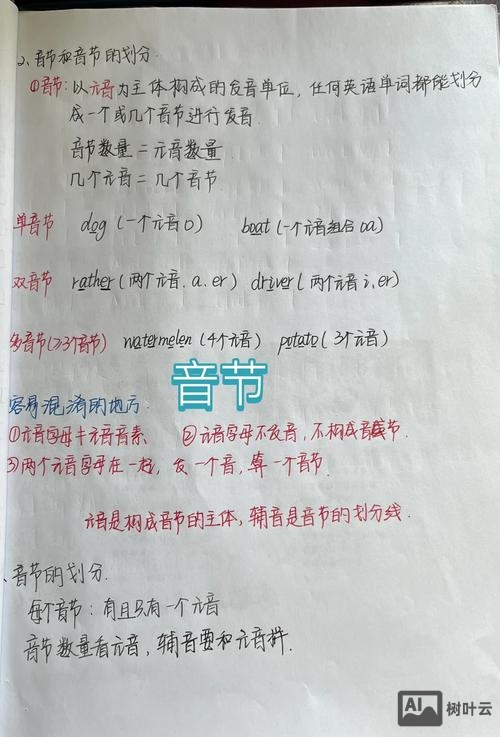 2、音节和音节的划分.
①音节: 以元音为主体构成的发音单位, 任何英语单词都能划分
成一个或几个音节进行发音.
音节数量 = 元音数量
几个元音 = 几个音节
单音节 dog (一个元音o) boat (一个元音组合oa)
双音节 rather (两个元音. a. er) driver (两个元音 i, er)
多音节(≥3个音节) watermelen (4个元音) potato (3个元音)
音节
容易混淆的地方.
①元音字母≠元音音素 ②元音字母不发音, 不构成音节.
③两个元音字母在一起, 发一个音, 算一个音节.
元音是构成音节的主体, 辅音是音节的划分线.
、音节的划分.
每个音节: 有且只有一个元音
音节数量看元音, 辅音要和元音拼.
AI 树叶云